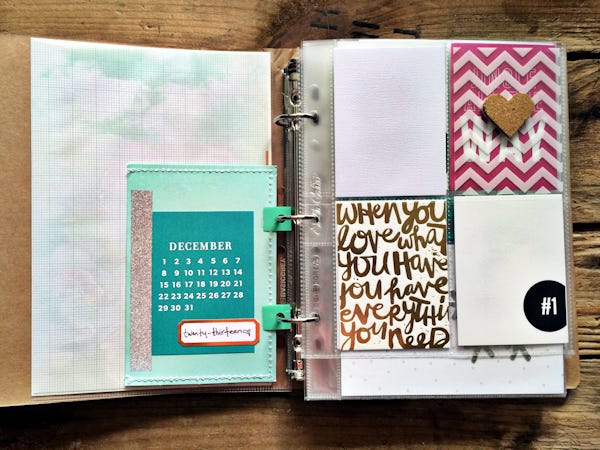 DECEMBER
1 2 3 4 5 6 7
8 9 10 11 12 13 14
15 16 17 18 19 20 21
22 23 24 25 26 27 28
29 30 31
twenty-thirteen
WAY
when you
love what
you have
you have
everythin
you
need
#1